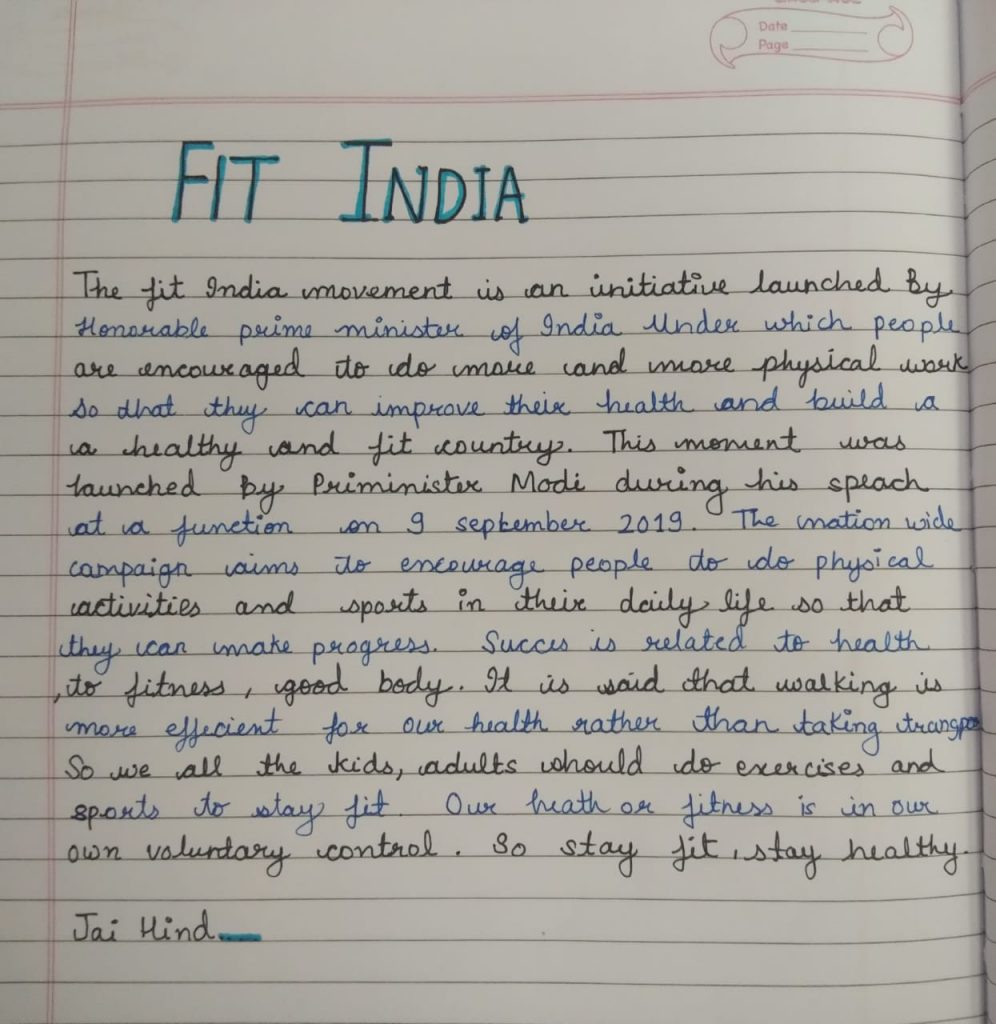 Date
Page
FIT INDIA
The fit India movement is an initiative launched By
Honorable prime minister of India Under which people
are encouraged to do more and more physical work
so that they can improve their health and build a
a healthy and fit country. This moment was
launched By Priminister Modi during his speach
at a function on 9 september 2019. The nation wide
campaign aims to encourage people to do physical
activities and sports in their daily life so that
they can make progress. Succes is related to health
, to fitness, good body. It is said that walking is
more effecient for our health rather than taking
So we all the kids, adults should do exercises and
sports to stay fit. Our heath or fitness is in our
own voluntary control. So stay fit, stay healthy.
Jai Hind